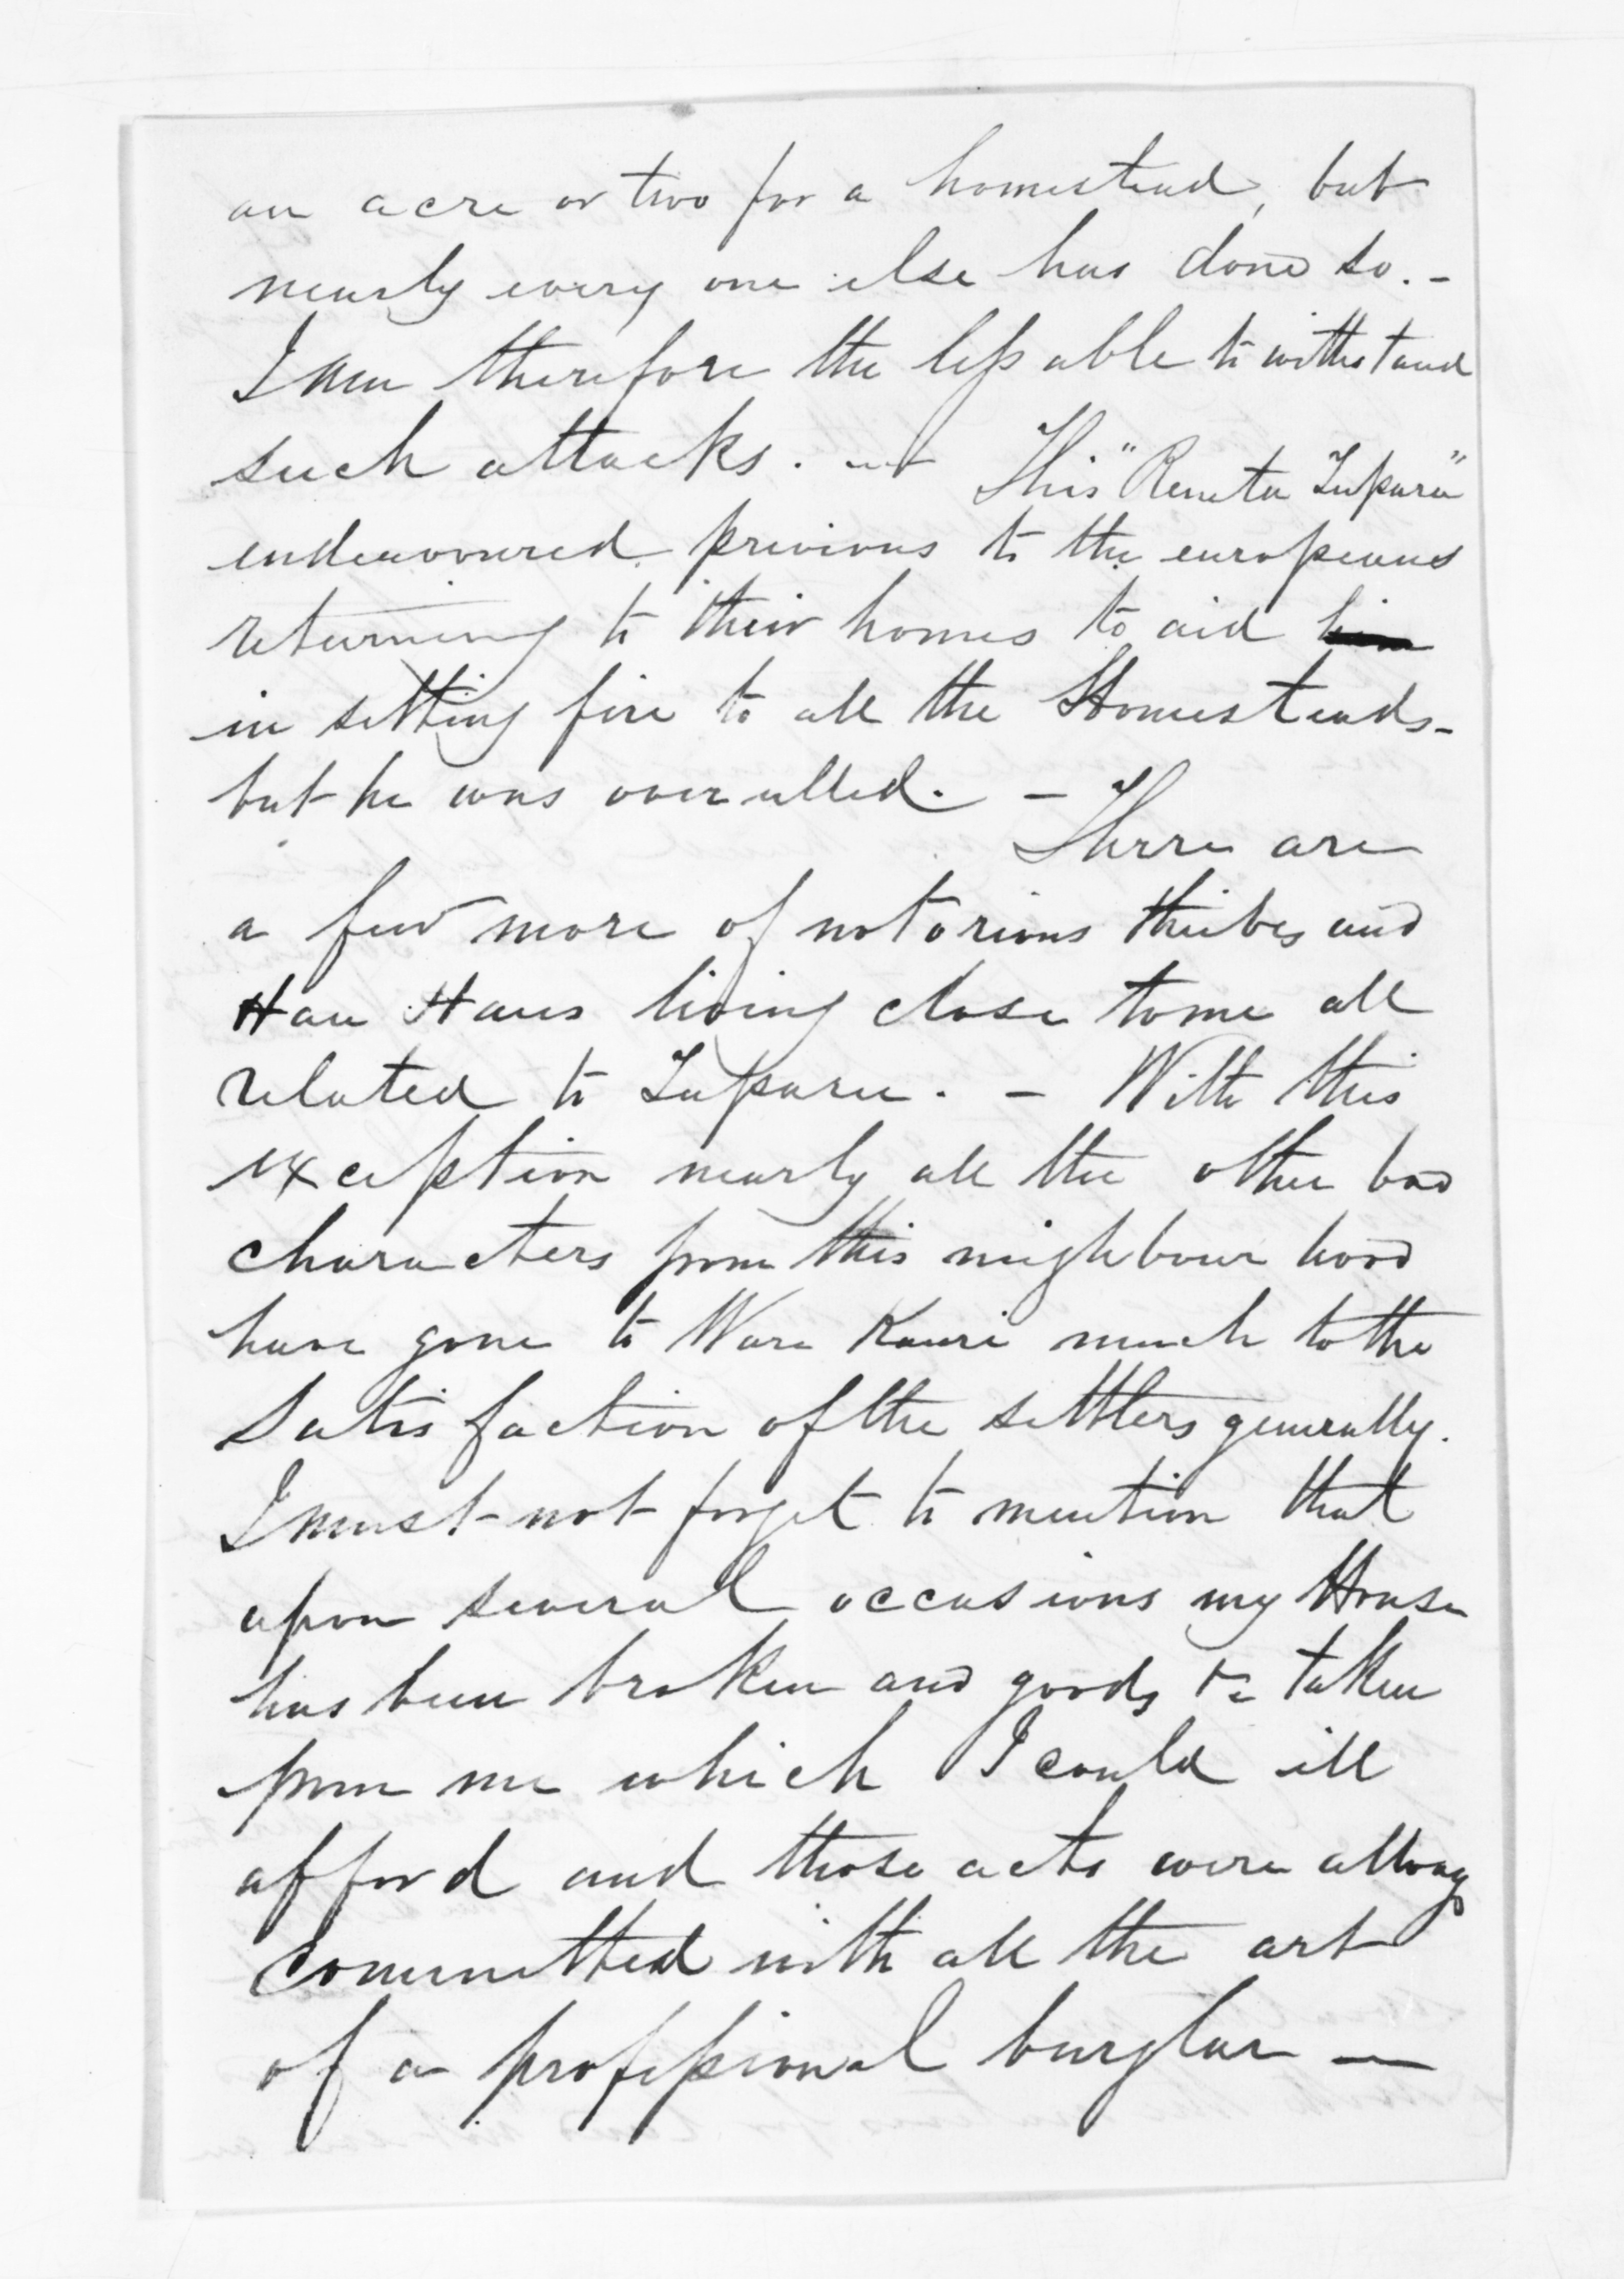 an acre or two for a homestead, but
nearly every one else has done so. -
I am therefore the less able to withstand
such attacks. — This "Reneta Tupara"
endeavoured previous to the europeans
returning to their homes to aid him
in setting fire to all the Homesteads -
but he was overulled. —
There are
a few more of notorious thieves and
Hau Haus living close to me all
related to Tupara. — With this
exception nearly all the other bad
characters from this neighbourhood
have gone to Ware Kauri much to the
satisfaction of the settlers generally.
I must not forget to mention that
upon several occasions my House
has been broken and goods &c taken
from me which I could ill
afford and those acts were allways
committed with all the art
of a professional burglar —